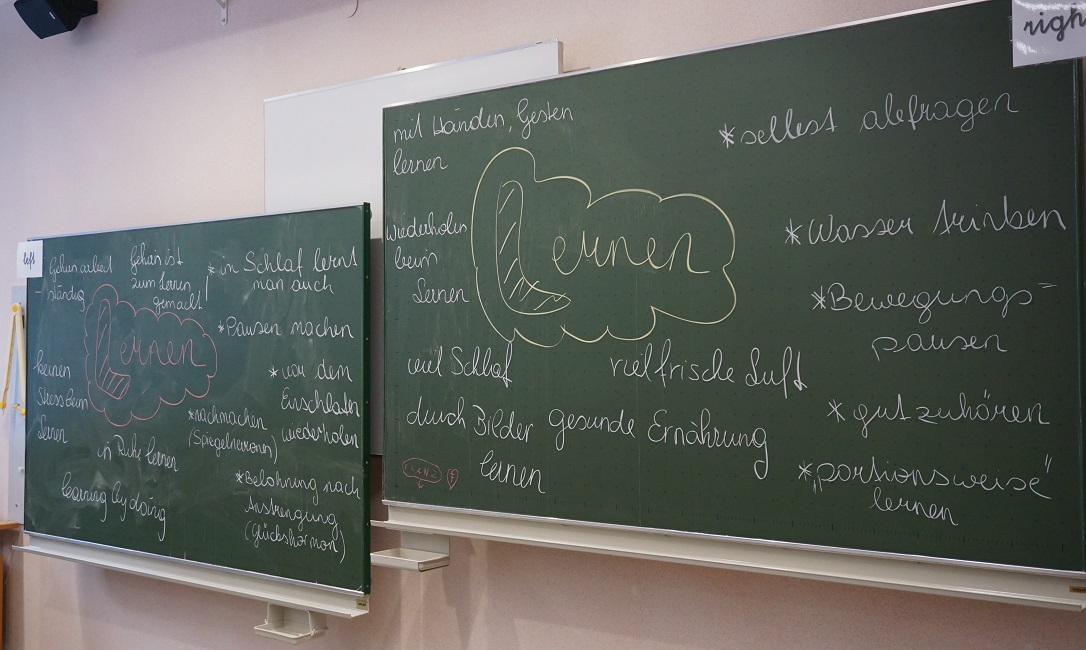 left
Gehirn arbeitet
ständig
Gehirn ist
zum Lernen
gemacht
* in Schlaf lernt
man auch
* Pausen machen
Lernen
* vor dem
Einschlafen
wiederholen
keinen
Stress beim
Lernen
* nachmachen
(Spiegelneuronen)
in Ruhe lernen
learning by doing
* Belohnung nach
Anstrengung
(Glückshormon)
right
mit Händen, Gesten
lernen
wiederholen
beim
Lernen
Lernen
viel Schlaf
viel frische Luft
durch Bilder
lernen
gesunde Ernährung
* selbst abfragen
* Wasser trinken
* Bewegungs-
pausen
* gut zuhören
* „portionsweise"
lernen